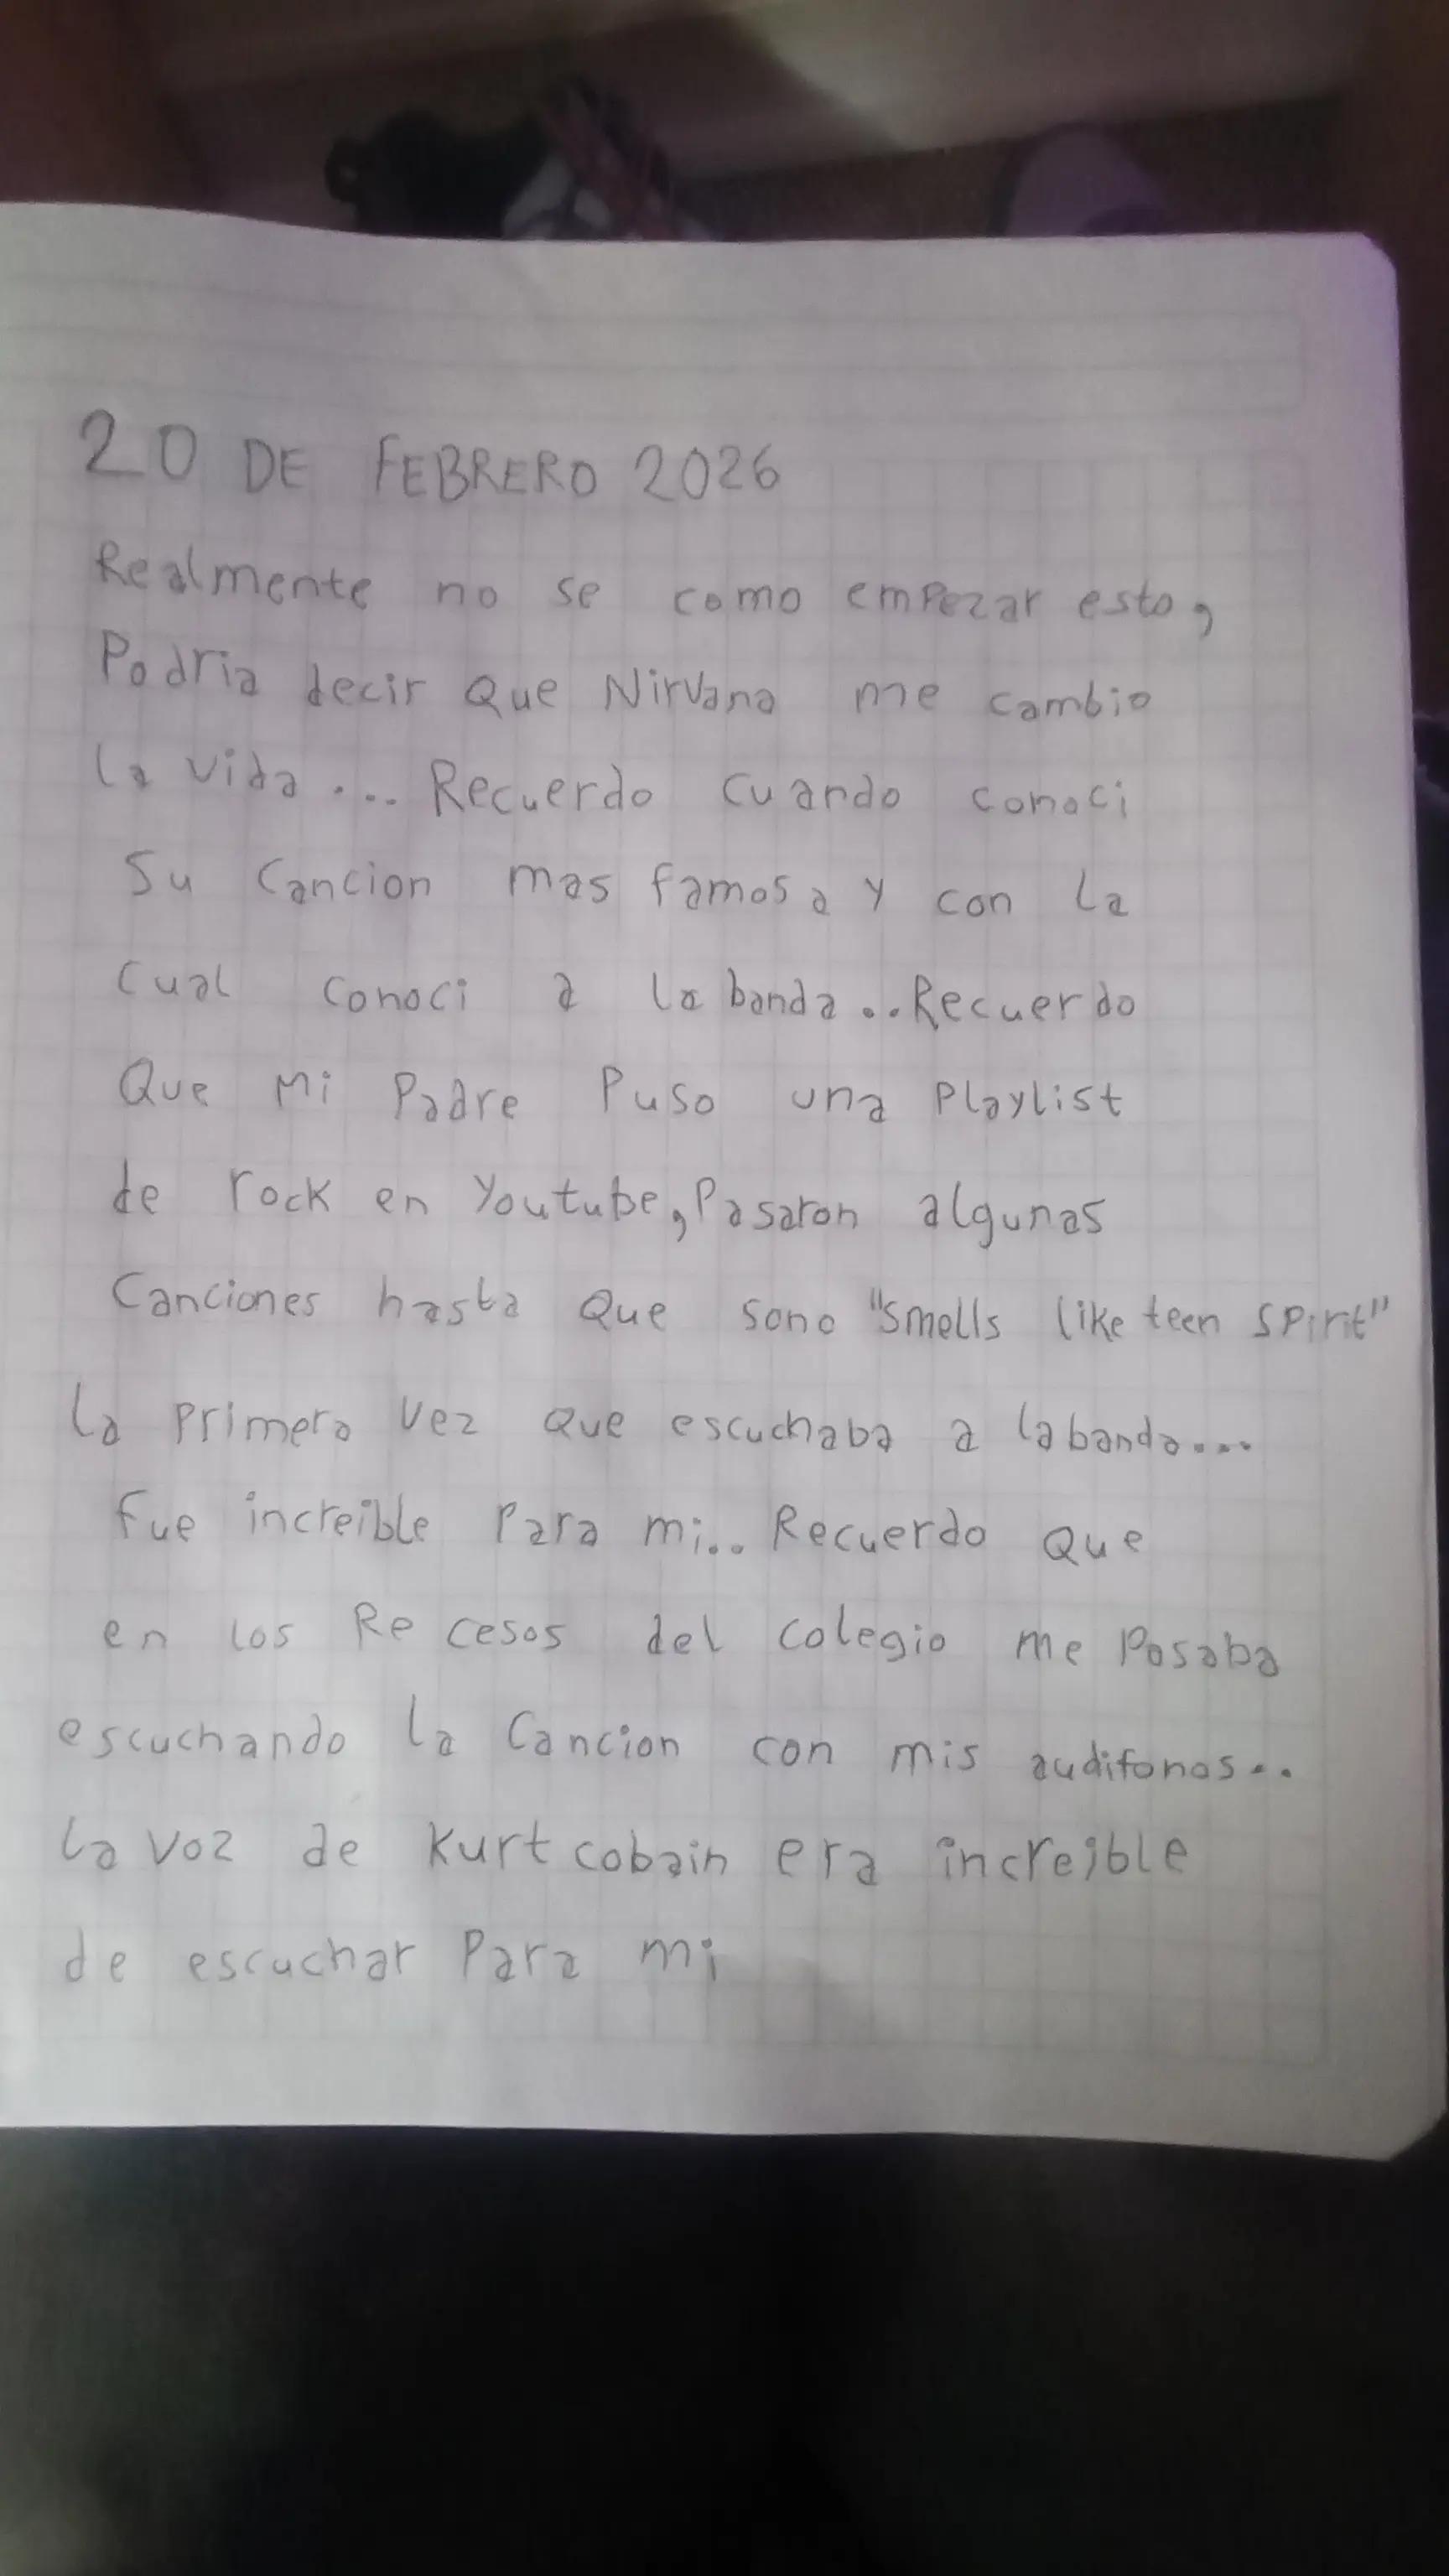 20 DE FEBRERO 2026
Realmente no se como empezar esto,
Podria decir Que Nirvana me cambio
la vida.... Recuerdo cuando conoci
Su Cancion mas famosa y con la
Cual conoci a la banda..Recuerdo
Que Mi Padre Puso una Playlist
de rock en Youtube, Pasaron algunas
Canciones hasta Que sono "Smells like teen spirit"
la Primera Vez Que escuchaba a la banda...
fue increible Para mi.. Recuerdo Que
en los Recesos del colegio me Pasaba
escuchando la Cancion con mis audifonos..
la voz de Kurt cobain era increible
de escuchar Para mi